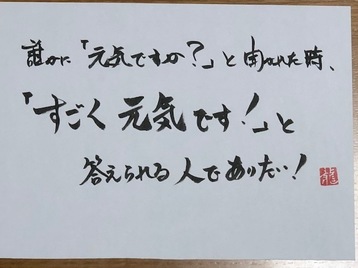 誰かに「元気ですか?」と聞かれた時、
「すごく元気です!」と
答えられる人でありたい!